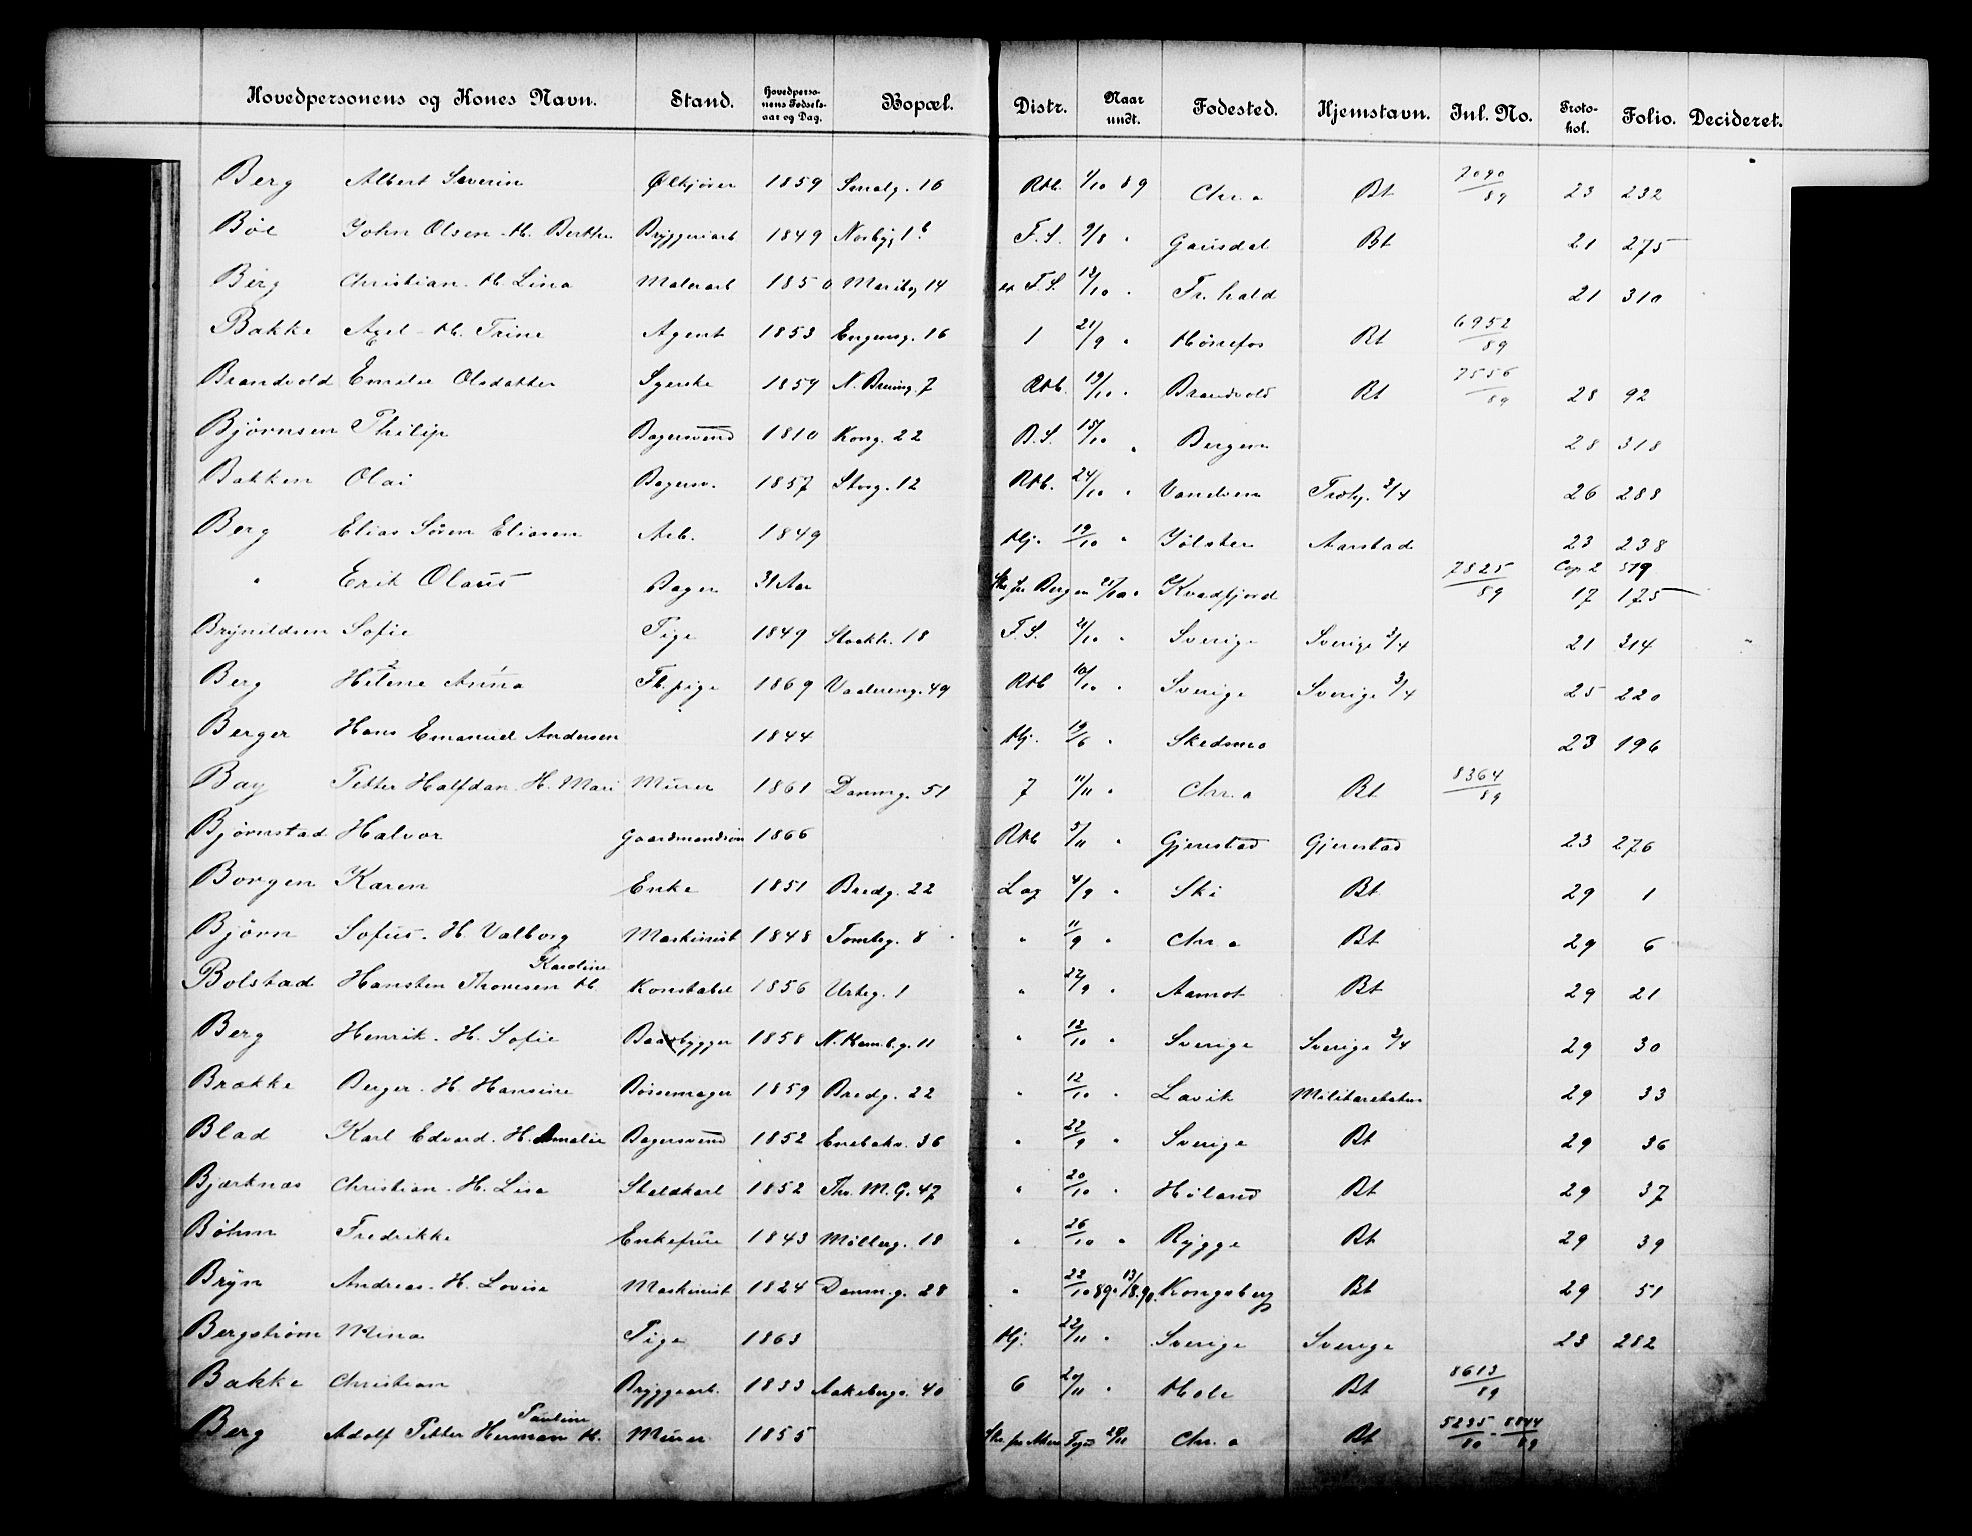 Hovedpersonens og Kones Navn. Stand. Hovedperso-nens Fødsels-aar og Dag. Bopæl. Distr. Naar undt. Fødested. Hjemstavn. Jul. No. Proto-kol. Folio. Decideret.
Berg Albert Severin Ølkjører 1859 Smalg. 16 Rkb. 1/10 89 Chr.a Bt 7090/89 23 232
Böe John Olsen H. Berthe Bryggeriarb 1849 F.S. 9/8 " Gausdal Bt 21 275
Berg Christian H. Lina Malerarb 1850 14 F.S. 12/10 " Fr. hald 21 310
Bakke Axel H. Trine Agent 1853 16 1 21/9 " Hønefos Bt 6952/89
Brandvold Emelie Olsdatter Syerske 1859 7 Rkb. 19/10 " Brandvold Bt 7556/89 28 92
Bjørnsen Philip Bagersvend 1810 Kong. 22 B.S. 15/10 " Bergen 28 318
Bakken Olai Bagersv. 1857 Storg. 12 Rkb. 24/10 " 3/4 26 288
Berg Elias Sören Eliasen Arb. 1849 Hj. 19/10 " Jölster Aarstad 23 238
" Erik Olaus Bager 31 Aar Skr. fra Bergen " Kvædfjord 7825/89 Cop. 2 519 17 175
Brynildsen Sofie Pige 1849 Stockh. 18 F.S. 21/10 " Sverige Sverige 3/4 21 314
Berg Helene Anna Fb. pige 1869 Vaalereng. 49 Rkb 10/10 " Sverige Sverige 3/4 25 220
Berger Hans Emanuel Andersen 1844 Hj. 19/6 " Skedsmo 23 196
Bay Petter Halfdan. H. Mari Murer 1861 Danm.g. 51 7 11/11 " Chr.a Bt 8364/89
Bjørnstad Halvor Gaardmandssøn 1866 Rkb 5/11 " Gjerestad Gjerestad 23 276
Borgen Karen Enke 1851 Bredg. 22 Lag 4/9 " Ski Bt 29 1
Björn Sofus. H. Valborg Maskinist 1848 Tomteg. 8 " 11/9 " Chr.a Bt 29 6
Karoline
Bolstad Hansten Thoresen H. Konstabel 1856 Urteg. 1 " 27/9 " Aamot Bt 29 21
Berg Henrik. H. Sofie Baadbygger 1858 11 " 12/10 " Sverige Sverige 3/4 29 30
Brække Berger. H. Hansine Børsemager 1859 Bredg. 22 " 12/10 " Lavik Militæretaten 29 33
Blad Karl Edvard. H. Amalie Bagersvend 1852 Enebakv. 36 " 22/9 " Sverige Bt 29 36
Bjærknæs Christian. H. Lise Staldkarl 1852 Thv. M. G. 47 " 20/10 " Höland Bt 29 37
Böhm Fredrikke Enkefrue 1843 Mölleg. 18 " 26/10 " Rygge Bt 29 39
Bryn Andreas. H. Lovise Maskinist 1824 Danm.g. 28 " 22/10 89 Kongsberg Bt 29 51
Bergstrøm Mina Pige 1863 Hj. 22/11 " Sverige Sverige 23 282
Bakke Christian Bryggearb. 1833 Aakebergv. 40 6 20/11 " Hole Bt 8613/89
Pauline
Berg Adolf Petter Herman H. Murer 1855 Skr. fra Akers Fogd Chr.a Bt 5235/80 - 8844/89